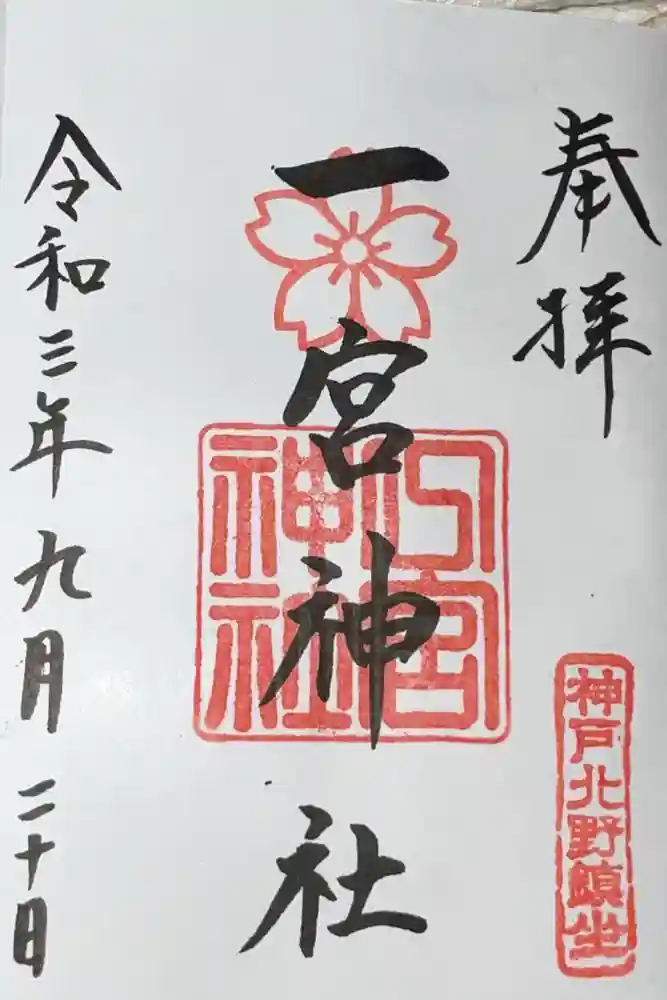 奉拝
神戸北野鎮坐
一宮神社
一宮神社
令和三年九月二十日